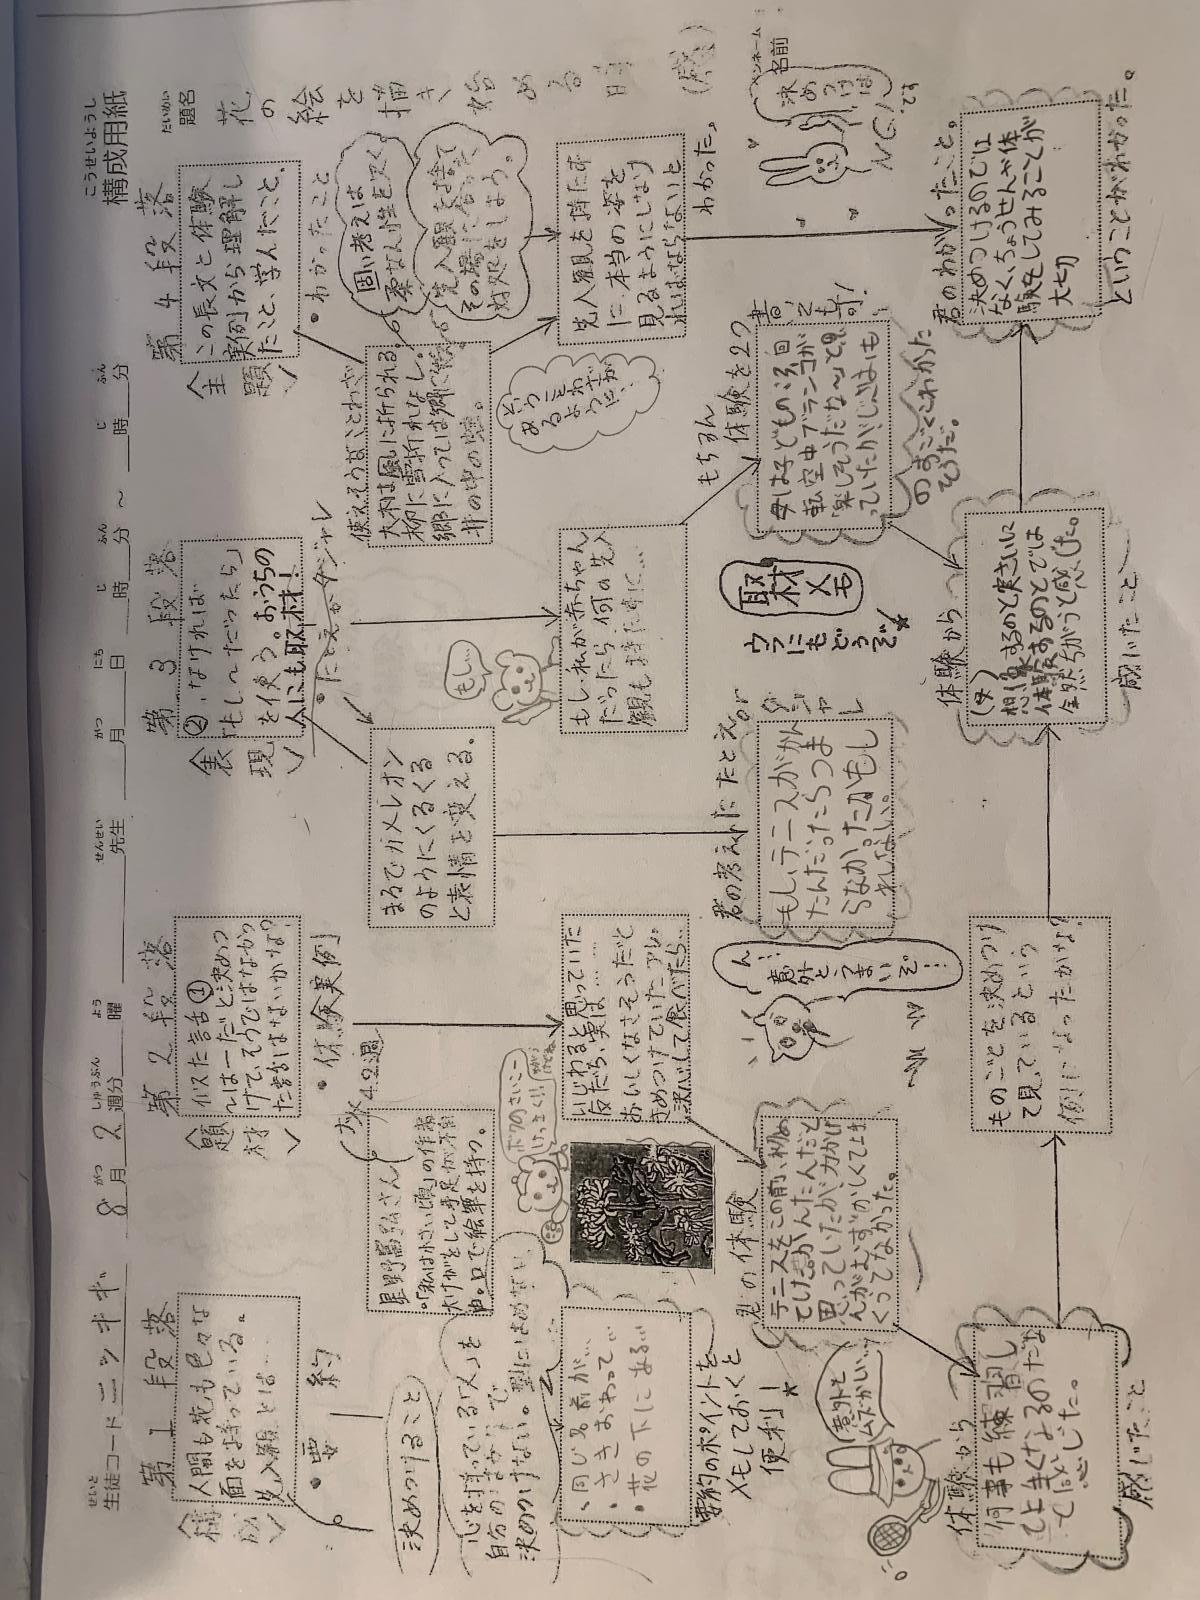 こうせいようし
構成用紙
だいめい
題名
花の絵を描き始める時
(感)
ペンネーム
名前
せいと
生徒コード
ニッキギ
8
がつ
月
2
しゅうぶん
週分
よう
曜
せんせい
先生
がつ
月
にち
日
じ
時
ふん
分
～
じ
時
ふん
分
第1段落
〈構成〉
人間も花も色々な
面を持っている。
先入観とは…
・要約
決めつけること
心を持っている「人」を
自分のものさしで
決めつけない。型にはめない。
・同じ名前が…
・さきおわって…
・花の下にある…
要約のポイントを
メモしておくと
便利！
意外と
ムズかしい…
体験から
何事も練習し
て上手くなるのだな
って感じた。
感じたこと
第2段落
〈題材〉
似た話①
～は－だと決めつ
けて、そうではなかっ
た話はないかな？
・体験実例
星野富弘さん
。「私は小さい頃」の作品
大けがをして手足が不自
由。口で絵筆を持つ。
ボクのさいこー
けっさく！！
いじわると思っていた
友だち、実は……
おいしくなさそうだと
きめつけていたアレ。
決心して食べたら…
君の体験
テニスをこの前、初め
てけいかんたんだと
思っていたが力かげ
んがむずかしくて上手
くってなかった。
ん！
意外と
うまいぞ…
ものごとを決めつけ
て見っているという
例になったかな？
第3段落
〈表現〉
②いなければ
「もし～だったら」
を使う。おうちの
人にも取材！
・たとえかダジャレ
まるでカメレオン
のようにくるくる
と表情を変える。
もし…
もし私が赤ちゃん
だったら、何の先入
観も持たずに…
君の考えたたとえor
ダジャレ
もし、テニスがかん
たんだったらつま
らなかったかもし
れない。
もちろん
体験を2つ
書いても可！
取材メモ
ウラにもどうぞ
母は子どもの頃、回
転空中ブランコが
「楽しそうだな～」と思
っていたがじつはもの
すごくこわかった
そうだ。
体験から
(母)
想像するのと実さいに
体験するのとでは
全然ちがうと感じた。
感じたこと
第4段落
〈主題〉
この長文と体験
実例から理解し
たこと、学んだこと。
・わかったこと
使えそうなことわざ
大木は風に折られる
柳に雪折れなし。
郷に入っては郷に従え。
井の中の蛙。
固い考えは
柔なん性を欠く。
先入観を捨て
その場に合った
対処をしよう。
先入観を持たず
に、本当の姿を
見るようにしなけ
ればならないと
わかった。
決めつけは
NG!です
君のわかったこと。
決めつけるのでは
なく、ちょうせんや体
験をしてみることが
大切
ということがわかった。